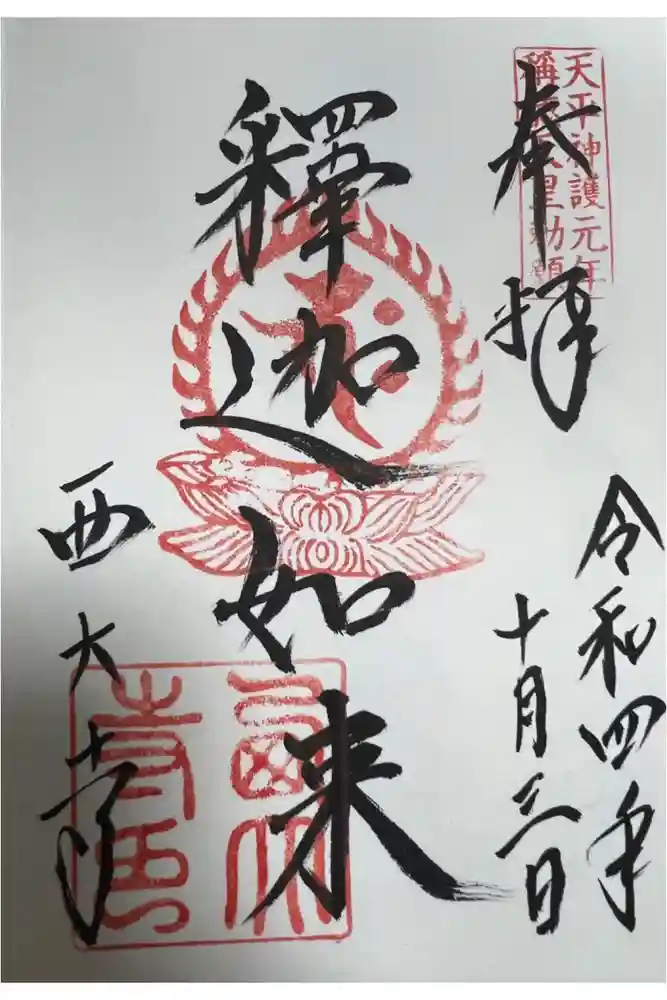 天平神護元年
稱徳天皇勅願
奉拝
令和四年
十月三日
釋迦如来
西大寺
西大寺印